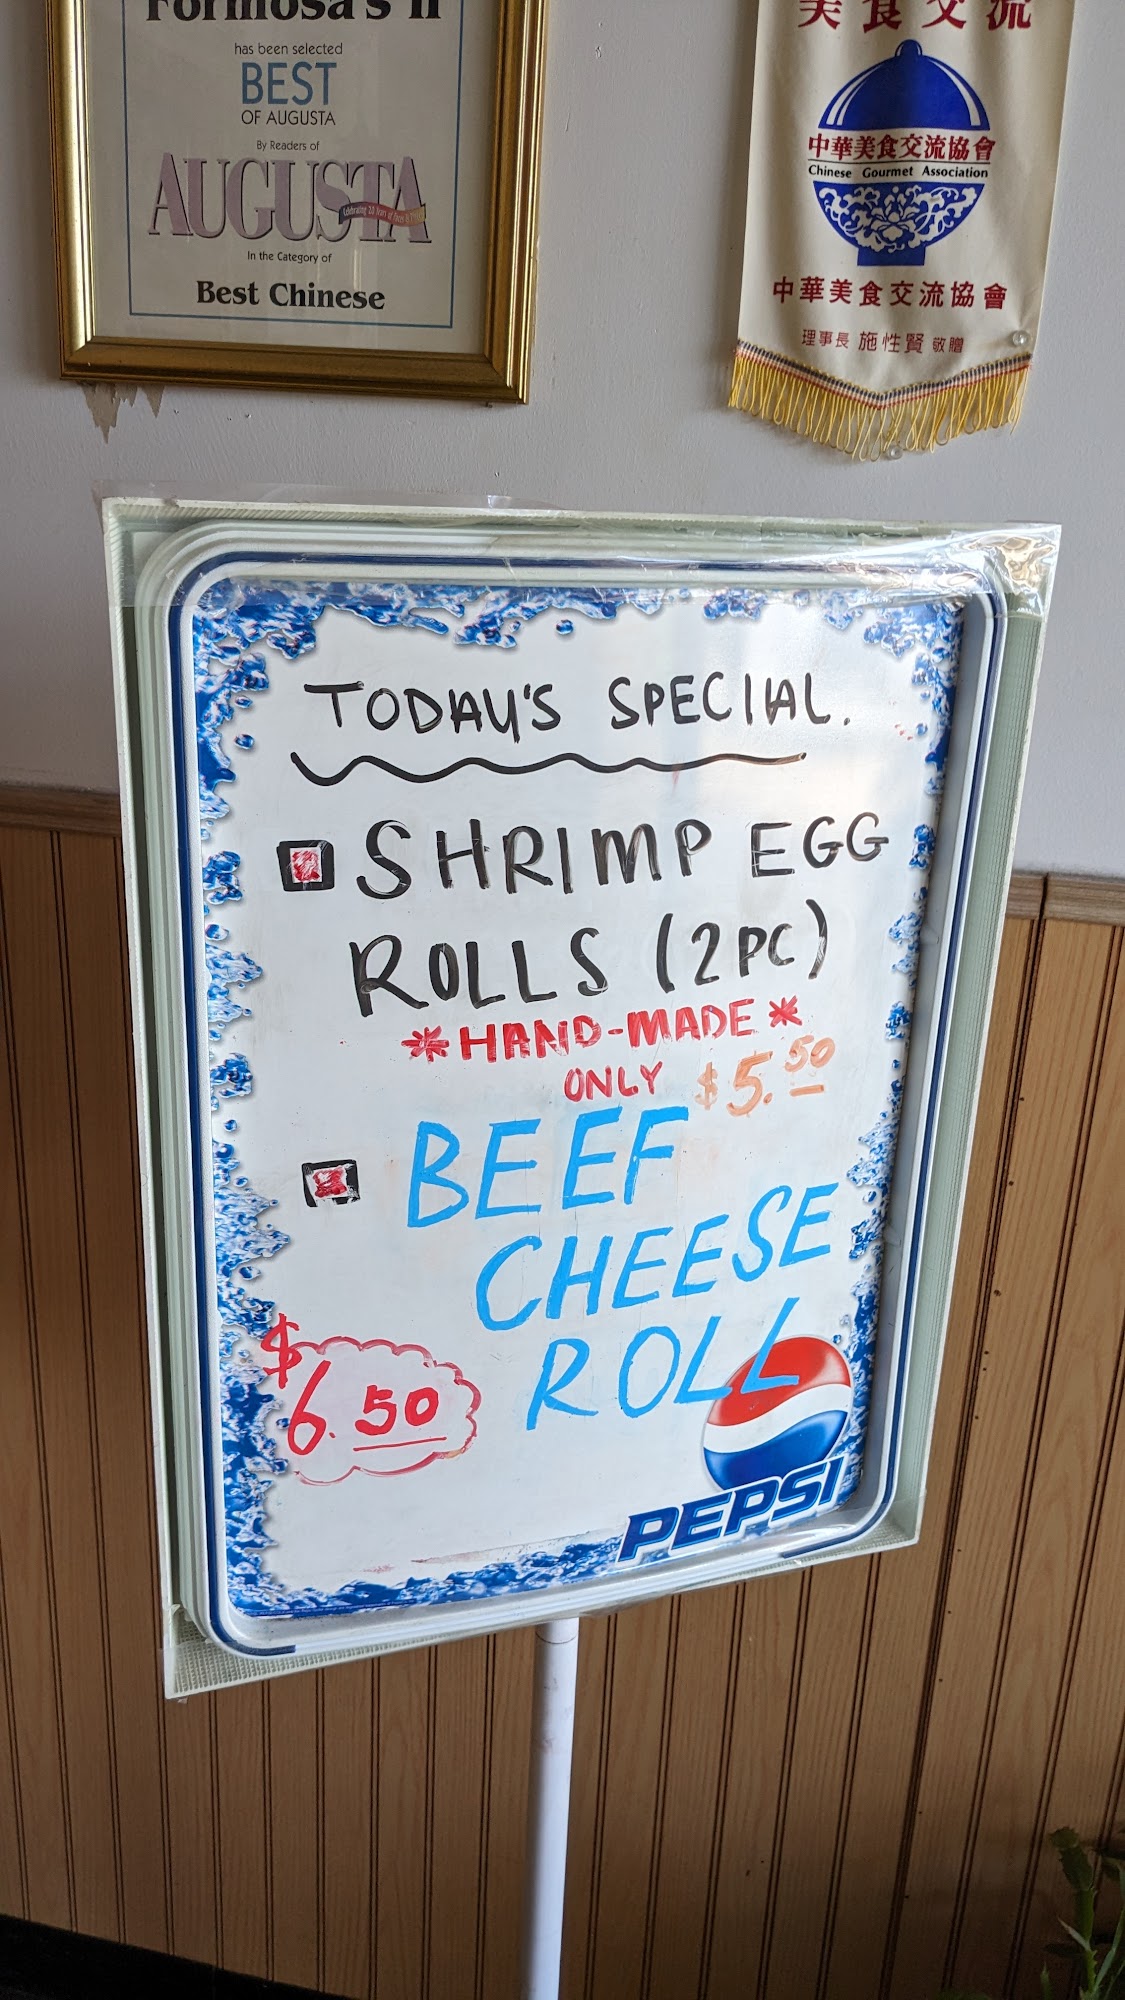 Formosa's II
has been selected
BEST
OF AUGUSTA
By Readers of
AUGUSTA
In the Category of
Best Chinese
美食交流
中華美食交流協會
Chinese Gourmet Association
中華美食交流協會
理事長 施性賢 敬贈
TODAY'S SPECIAL.
SHRIMP EGG
ROLLS (2PC)
*HAND-MADE*
ONLY $5.50
BEEF
CHEESE
ROLL
$6.50
PEPSI